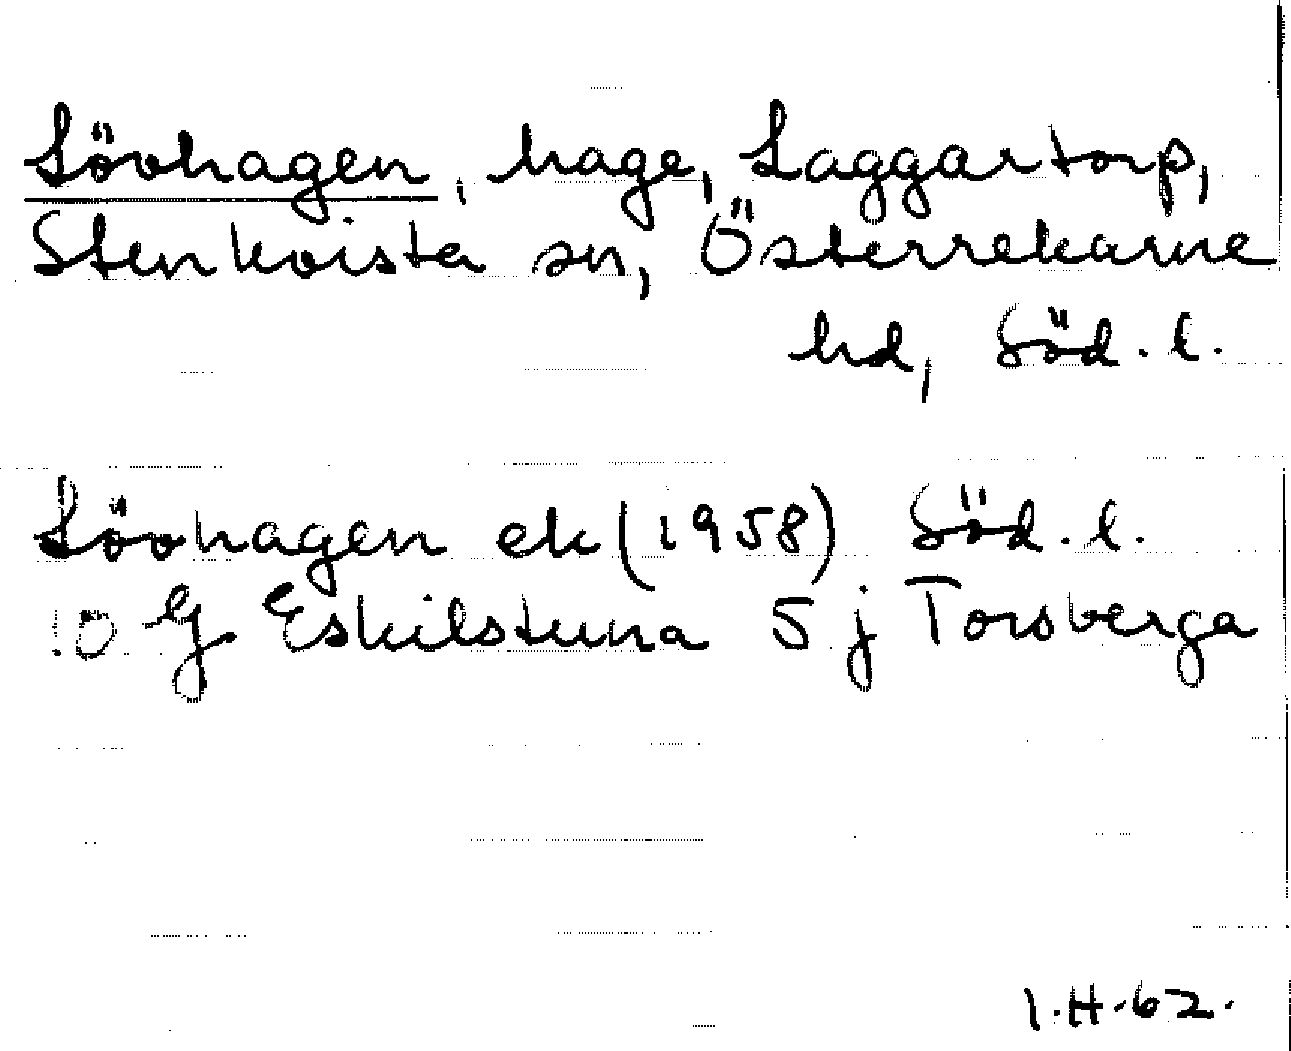 Lövhagen, hage, Laggartorp,
Stenkvista sn, Österrekarne
hd, Söd. l.
Lövhagen ek (1958) Söd. l.
10 G Eskilstuna 5 j Torsberga
I.H.62.